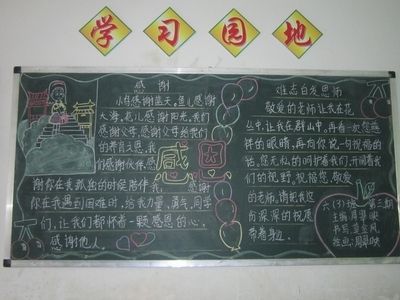 学习园地
感谢
小鸟感谢蓝天,鱼儿感谢
大海,花儿感谢阳光,我们
感谢父母,感谢父母给我们
的养育之恩,我
们感谢伙伴,感
谢你在我孤独的时候陪伴
我, 感谢
你在我遇到困难时,给我力量,勇气,同学
们,让我们都怀着一颗感恩的心。
感谢他人。
感恩
难忘白发恩师
敬爱的老师让我在花
丛中,让我在群山中。再看一次您
钟的眼睛,再向你说一句祝福的
话,您无私的呵护着我们,开阔着我
们的视野,祝福您,敬爱
的老师。请把我这
份深深的祝愿
带着身边。
六(3)班 第三期
主编:周
书写:
绘画:周